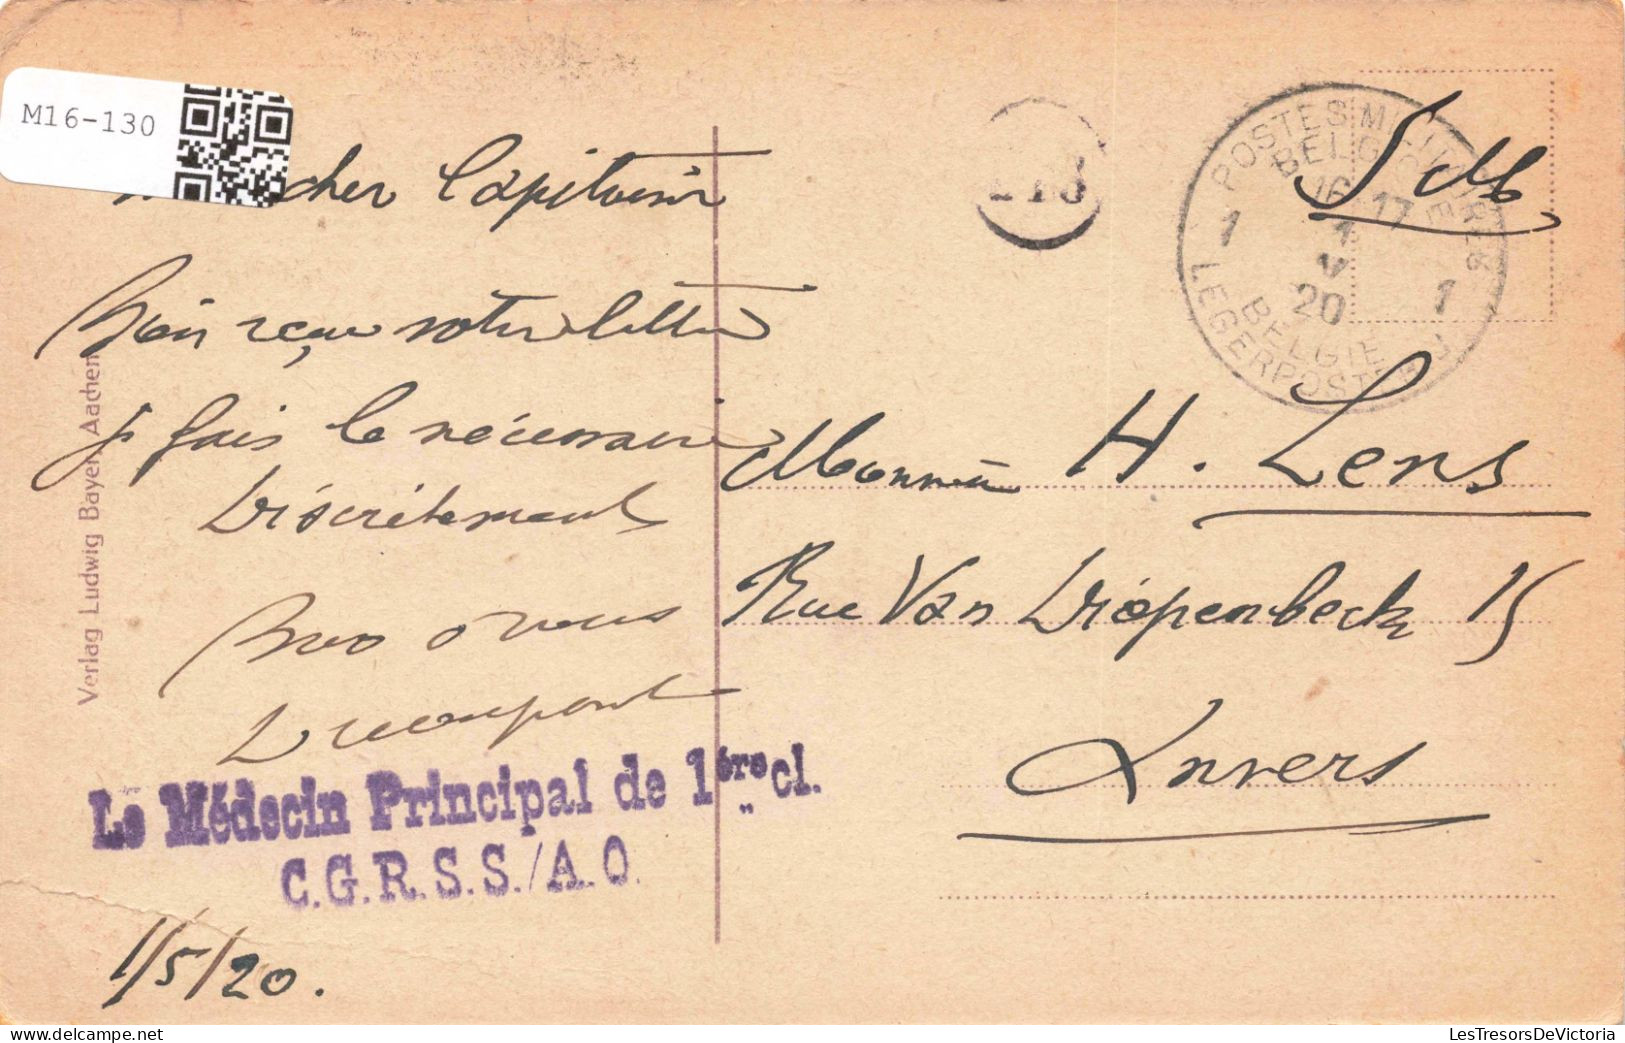 M16-130
cher Capitaine
Bien reçu votre lettre
je fais le nécessaire
Discrètement
Bien à vous
Le Médecin Principal de 1ère cl.
C.G.R.S.S./A.O.
1/5/20.
Verlag Ludwig Bayer, Aachen
POSTES MILITAIRES
BELGIQUE
16-17
1 1 1
V
20
BELGIE
LEGERPOSTERIJ
S M
Monsieur H. Lens
Rue Van Diepenbeck 15
Anvers
LesTresorsDeVictoria
delcampe.net